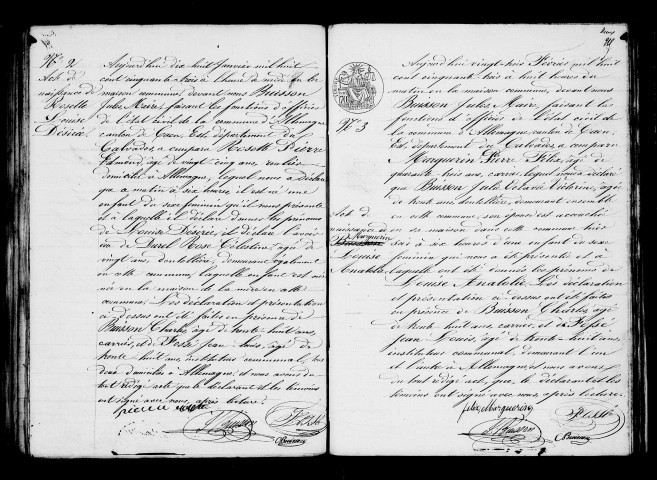 N° 2
Acte de
naissance de
Rosette
Louise
Désirée
Aujourd'hui dix huit Janvier mil huit
cent cinquante trois à l'heure de midi en la
maison commune, devant nous Buisson
Jules Maire, faisant les fonctions d'officier
de l'état civil de la commune d'Allemagne
canton de Caen Est, département du
Calvados, a comparu Rosette Pierre
Edmond, âgé de vingt cinq ans, 
domicilié à Allemagne, lequel nous a déclaré
que ce matin à six heures, il est né une
enfant du sexe féminin qu'il nous présente
et à laquelle il déclare donner les prénoms
de Louise Désirée, et il déclare l'avoir
eu de Burel Rose Célestine, âgée de
vingt ans, dentellière, demeurant également
en cette commune, laquelle enfant est
née en la maison de la mère en cette
commune. Les déclaration et présentation
ci dessus ont été faites en présence de
Buisson Charles, âgé de trente huit ans,
carrier, et de Fossé Jean Louis, âgé de
trente huit ans, instituteur communal, tous
deux domiciliés à Allemagne, et nous avons du
tout rédigé acte que le déclarant et les témoins
ont signé avec nous, après lecture.
J. Buisson
Fossé
C. Buisson
N° 3
Acte de
naissance de
Marguerin
Louise
Anatolie
Aujourd'hui vingt trois Février mil huit
cent cinquante trois à huit heures du
matin en la maison commune, devant nous
Buisson Jules Maire, faisant les
fonctions d'officier de l'état civil de
la commune d'Allemagne, canton de Caen
Est, département du Calvados, a comparu
Marguerin Pierre Félix, âgé de
quarante trois ans, carrier, lequel nous a déclaré
que Buisson Julie Octavie Victorine, âgée
de trente ans, dentellière, demeurant ensemble
en cette commune, son épouse est accouchée
en sa maison dans cette commune hier
soir à six heures d'un enfant du sexe
féminin que nous a été présenté et à
laquelle ont été donnés les prénoms de
Louise Anatolie. Les déclaration
et présentation ci dessus ont été faites
en présence de Buisson Charles, âgé
de trente huit ans, carrier, et de Fossé
Jean Louis, âgé de trente huit ans,
instituteur communal, demeurant l'un
et l'autre à Allemagne, et nous avons
du tout rédigé acte, que le déclarant et les
témoins ont signé avec nous après lecture.
felix Marguerin
J. Buisson
Fossé
C. Buisson